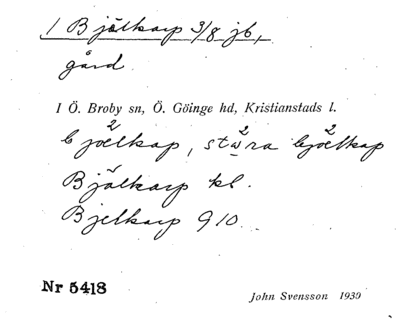 1 Bjälkarp 3/8 jb,
gård
I Ö. Broby sn, Ö. Göinge hd, Kristianstads l.
bjælkap, stæra bjælkap
Bjälkarp kl.
Bjelkarp 910.
Nr 5418
John Svensson 1930